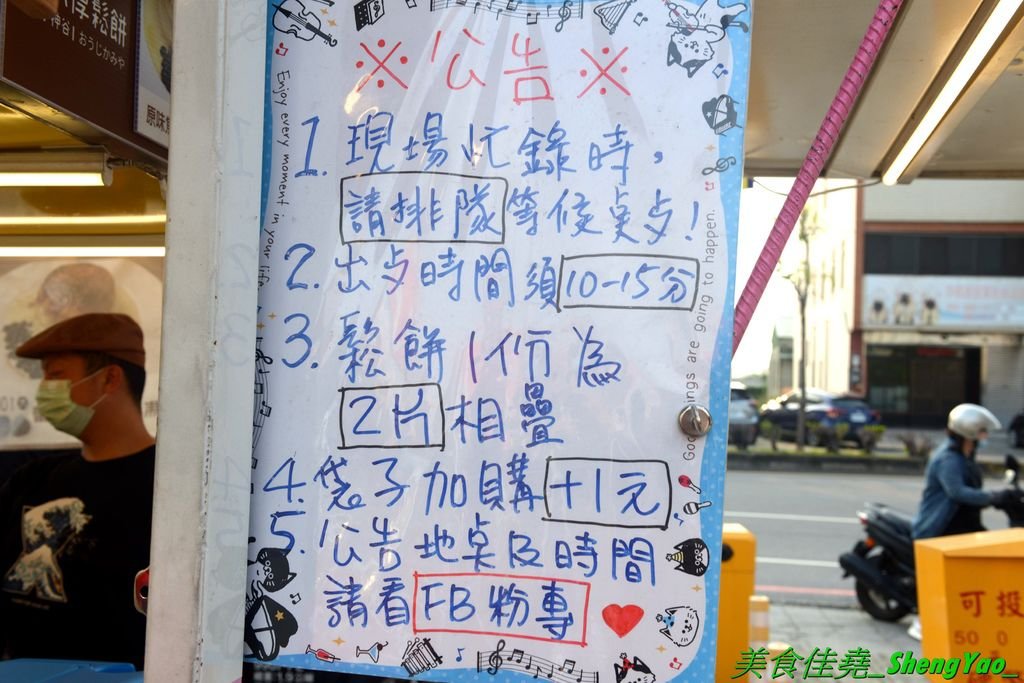 ※公告※
1. 現場忙錄時,
請排隊等候桌步!
2. 出步時間須10-15分
3. 鬆餅1份為
2片相疊
4. 袋子加購+1元
5. 公告地桌及時間
請看FB粉專
Enjoy every moment in your life.
things are going to happen.
鬆餅
神谷|おうじかみや
原味
可投
50
美食佳堯_ShengYao_